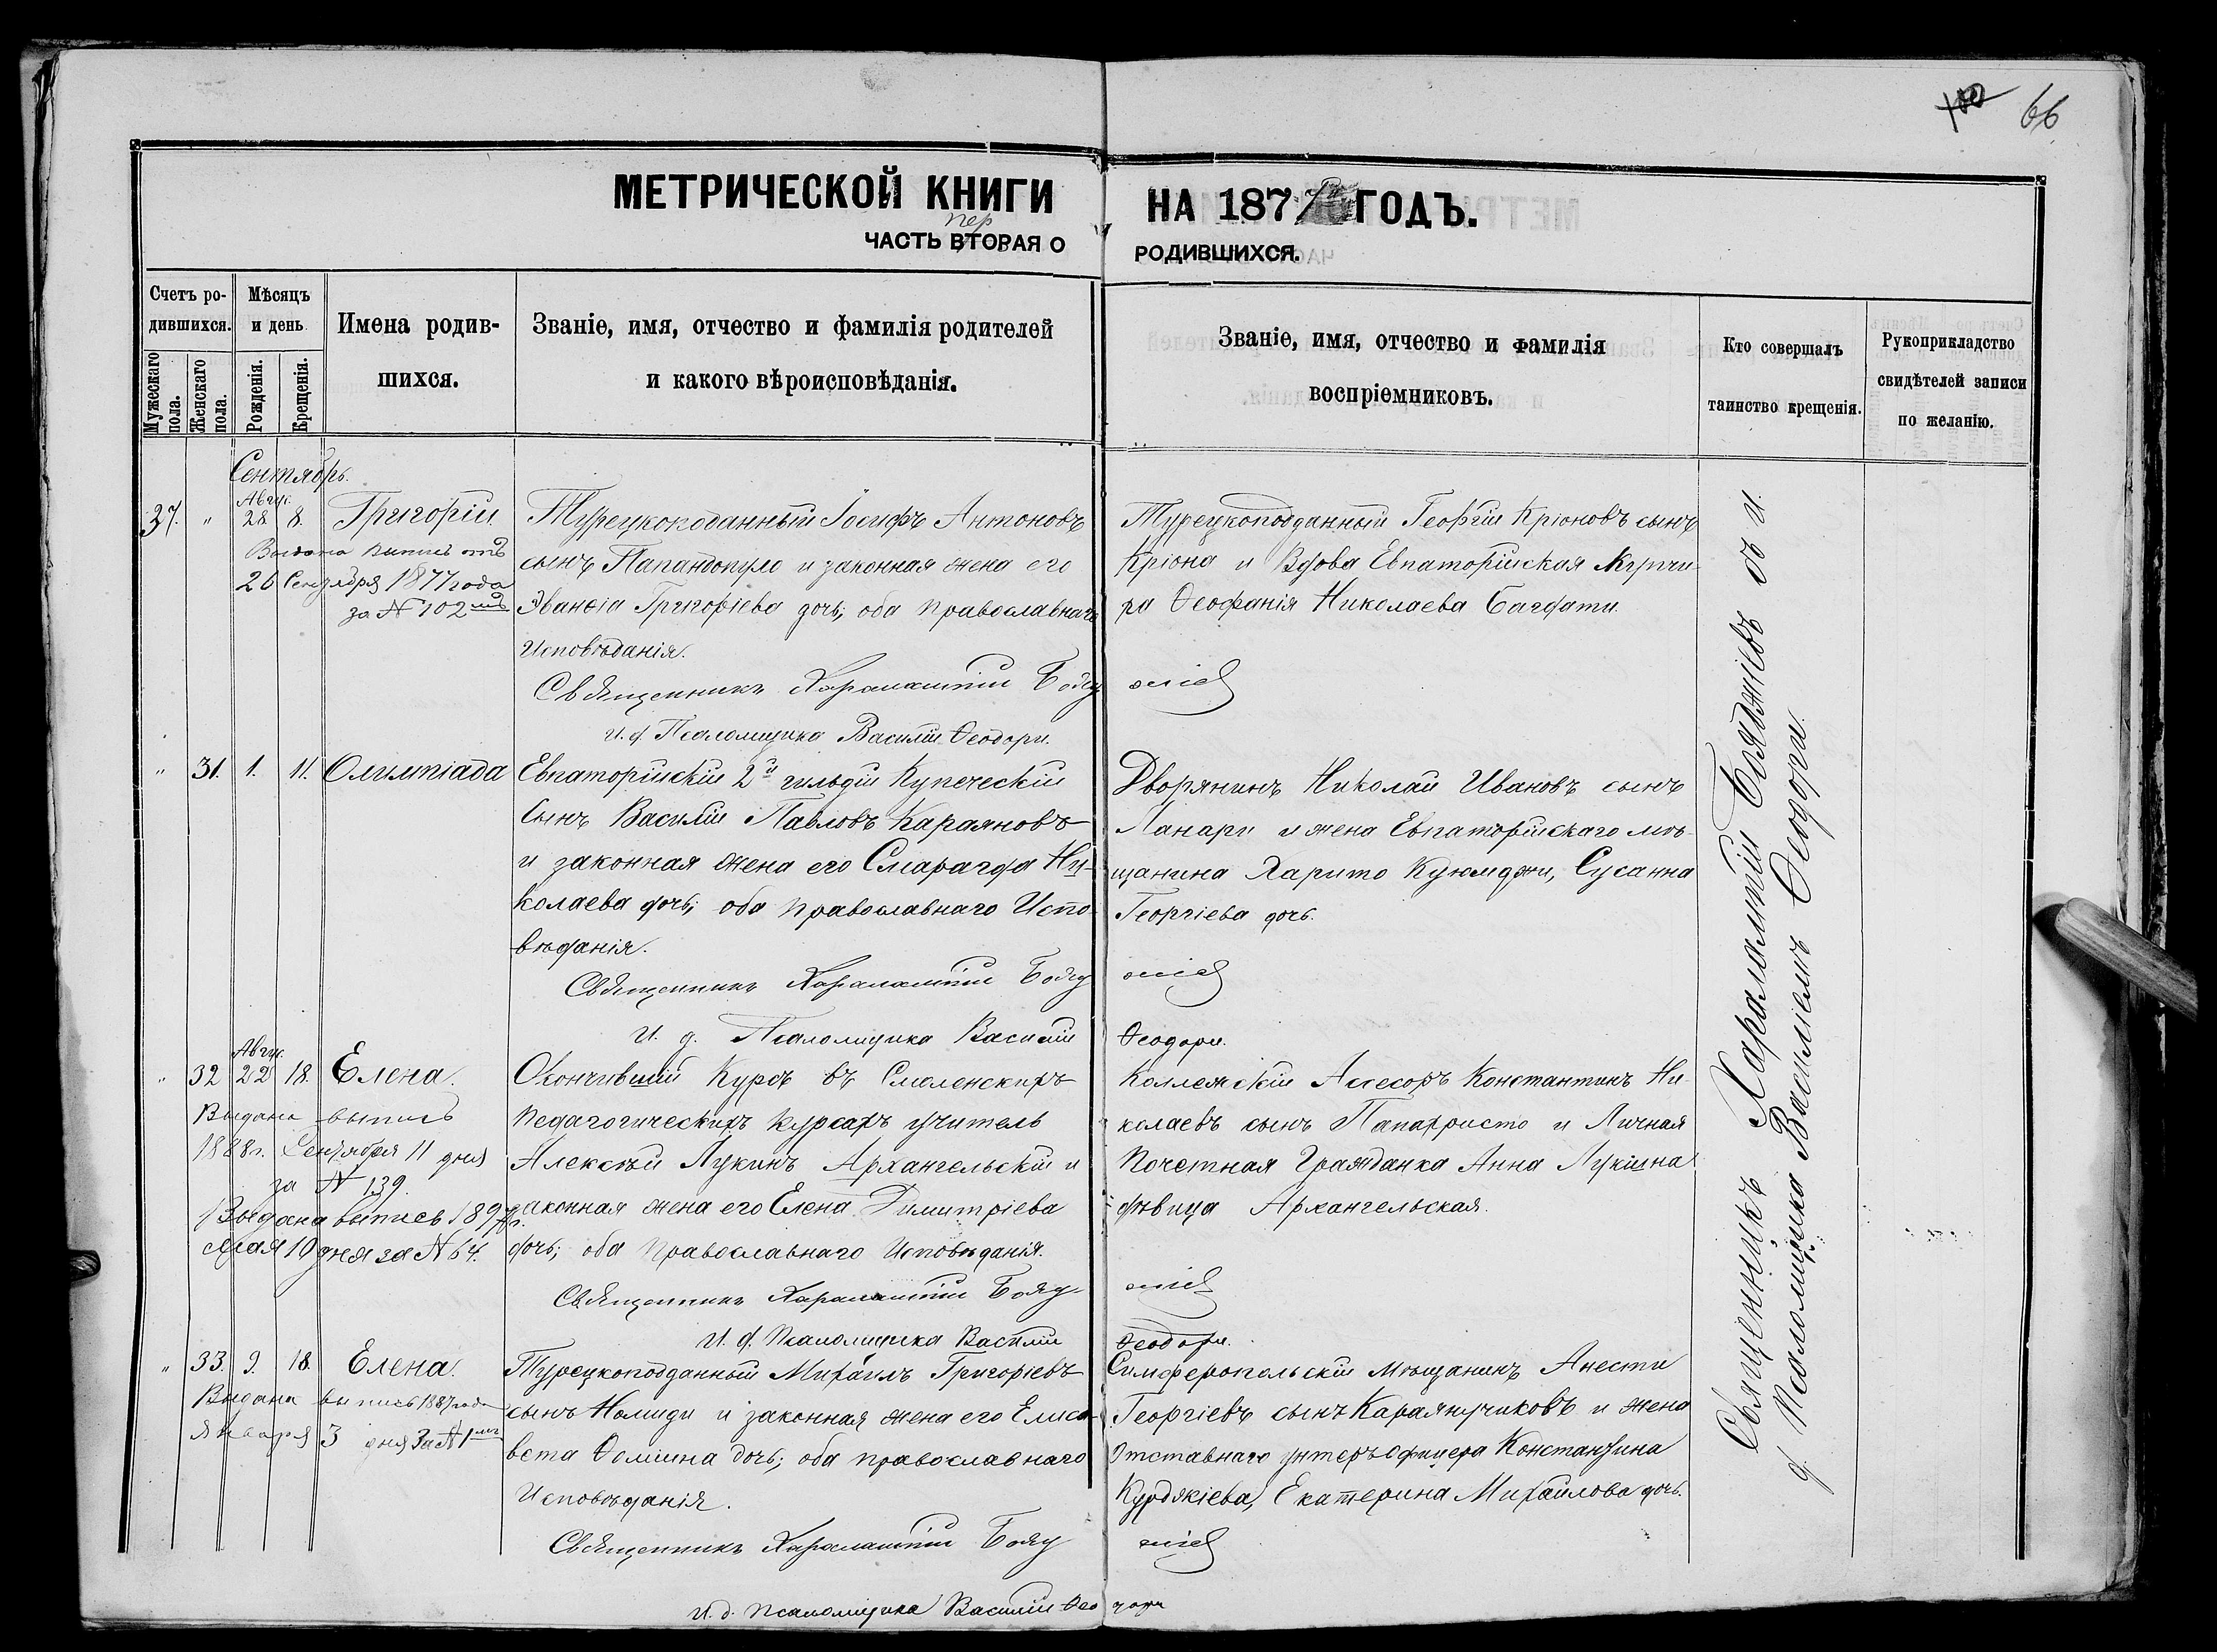 100 66
МЕТРИЧЕСКОЙ КНИГИ НА 1877 ГОДЪ.
пер
ЧАСТЬ ВТОРАЯ О РОДИВШИХСЯ.
Счетъ ро-
дившихся.
Мужескаго пола.
Женскаго пола.
Мѣсяцъ
и день
Рожденія.
Крещенія.
Имена родив-
шихся.
Званіе, имя, отчество и фамилія родителей
и какого вѣроисповѣданія.
Званіе, имя, отчество и фамилія
воспріемниковъ.
Кто совершалъ
таинство крещенія.
Рукоприкладство
свидѣтелей записи
по желанію.
Сентябрь.
Авгу.
37. " 28 8. Григорій
Выдана выпись отъ
26 Сентября 1877 года
за № 102
Турецкоподанный Іосифъ Антоновъ
сынъ Папандопуло и законная жена его
Эванѳіа Григоріева дочь, оба православнаго
Исповѣданія.
Священникъ Харалампій Бояджіевъ
И. д. Псаломщика Василій Ѳеодори.
Турецкоподданный Георгій Кріоновъ сынъ
Кріона и Вдова Евпаторійская Купчи-
ха Ѳеофанія Николаева Багдати.
" 31. 1. 11. Олимпіада
Евпаторійскій 2й гильдіи Купеческій
Сынъ Василій Павловъ Караяновъ
и законная жена его Смарагда Ни-
колаева дочь; оба православнаго Испо-
вѣданія.
Священникъ Харалампій Бояджіевъ
И. д. Псаломщика Василій Ѳеодори.
Дворянинъ Николай Ивановъ сынъ
Ланари и жена Евпаторійскаго мѣ-
щанина Харито Куюмджи, Сусанна
Георгіева дочь.
Авгу.
" 32 22 18. Елена.
Выдана выпись
1888г. Сентября 11 дня
за № 139.
Выдана выпись 1897г.
мая 10 дня за № 64.
Окончившій Курсъ въ Смоленскихъ
Педагогическихъ курсахъ учитель
Алексѣй Лукинъ Архангельскій и
законная жена его Елена Димитріева
дочь; оба Православнаго Исповѣданія.
Священникъ Харалампій Бояджіевъ
И. д. Псаломщика Василій Ѳеодори.
Коллежскій Асесоръ Константинъ Ни-
колаевъ сынъ Папахристо и Личная
Почетная Гражданка Анна Лукина
дѣвица Архангельская.
" 33. 9. 18. Елена.
Выдана выпись 1887 года
Января 3 дня За № 1
Турецкоподданный Михаилъ Григоріевъ
сынъ Номиди и законная жена его Елиса-
вета Ѳомина дочь; оба православнаго
Исповѣданія.
Священникъ Харалампій Бояджіевъ
И. д. Псаломщика Василій Ѳеодори
Симферопольскій мѣщанинъ Анести
Георгіевъ сынъ Караянучиковъ и жена
Отставнаго унтеръ офицера Константина
Курдякіева, Екатерина Михайлова дочь.
Священникъ Харалампій Бояджіевъ съ и.
д. Псаломщика Василіемъ Ѳеодори.